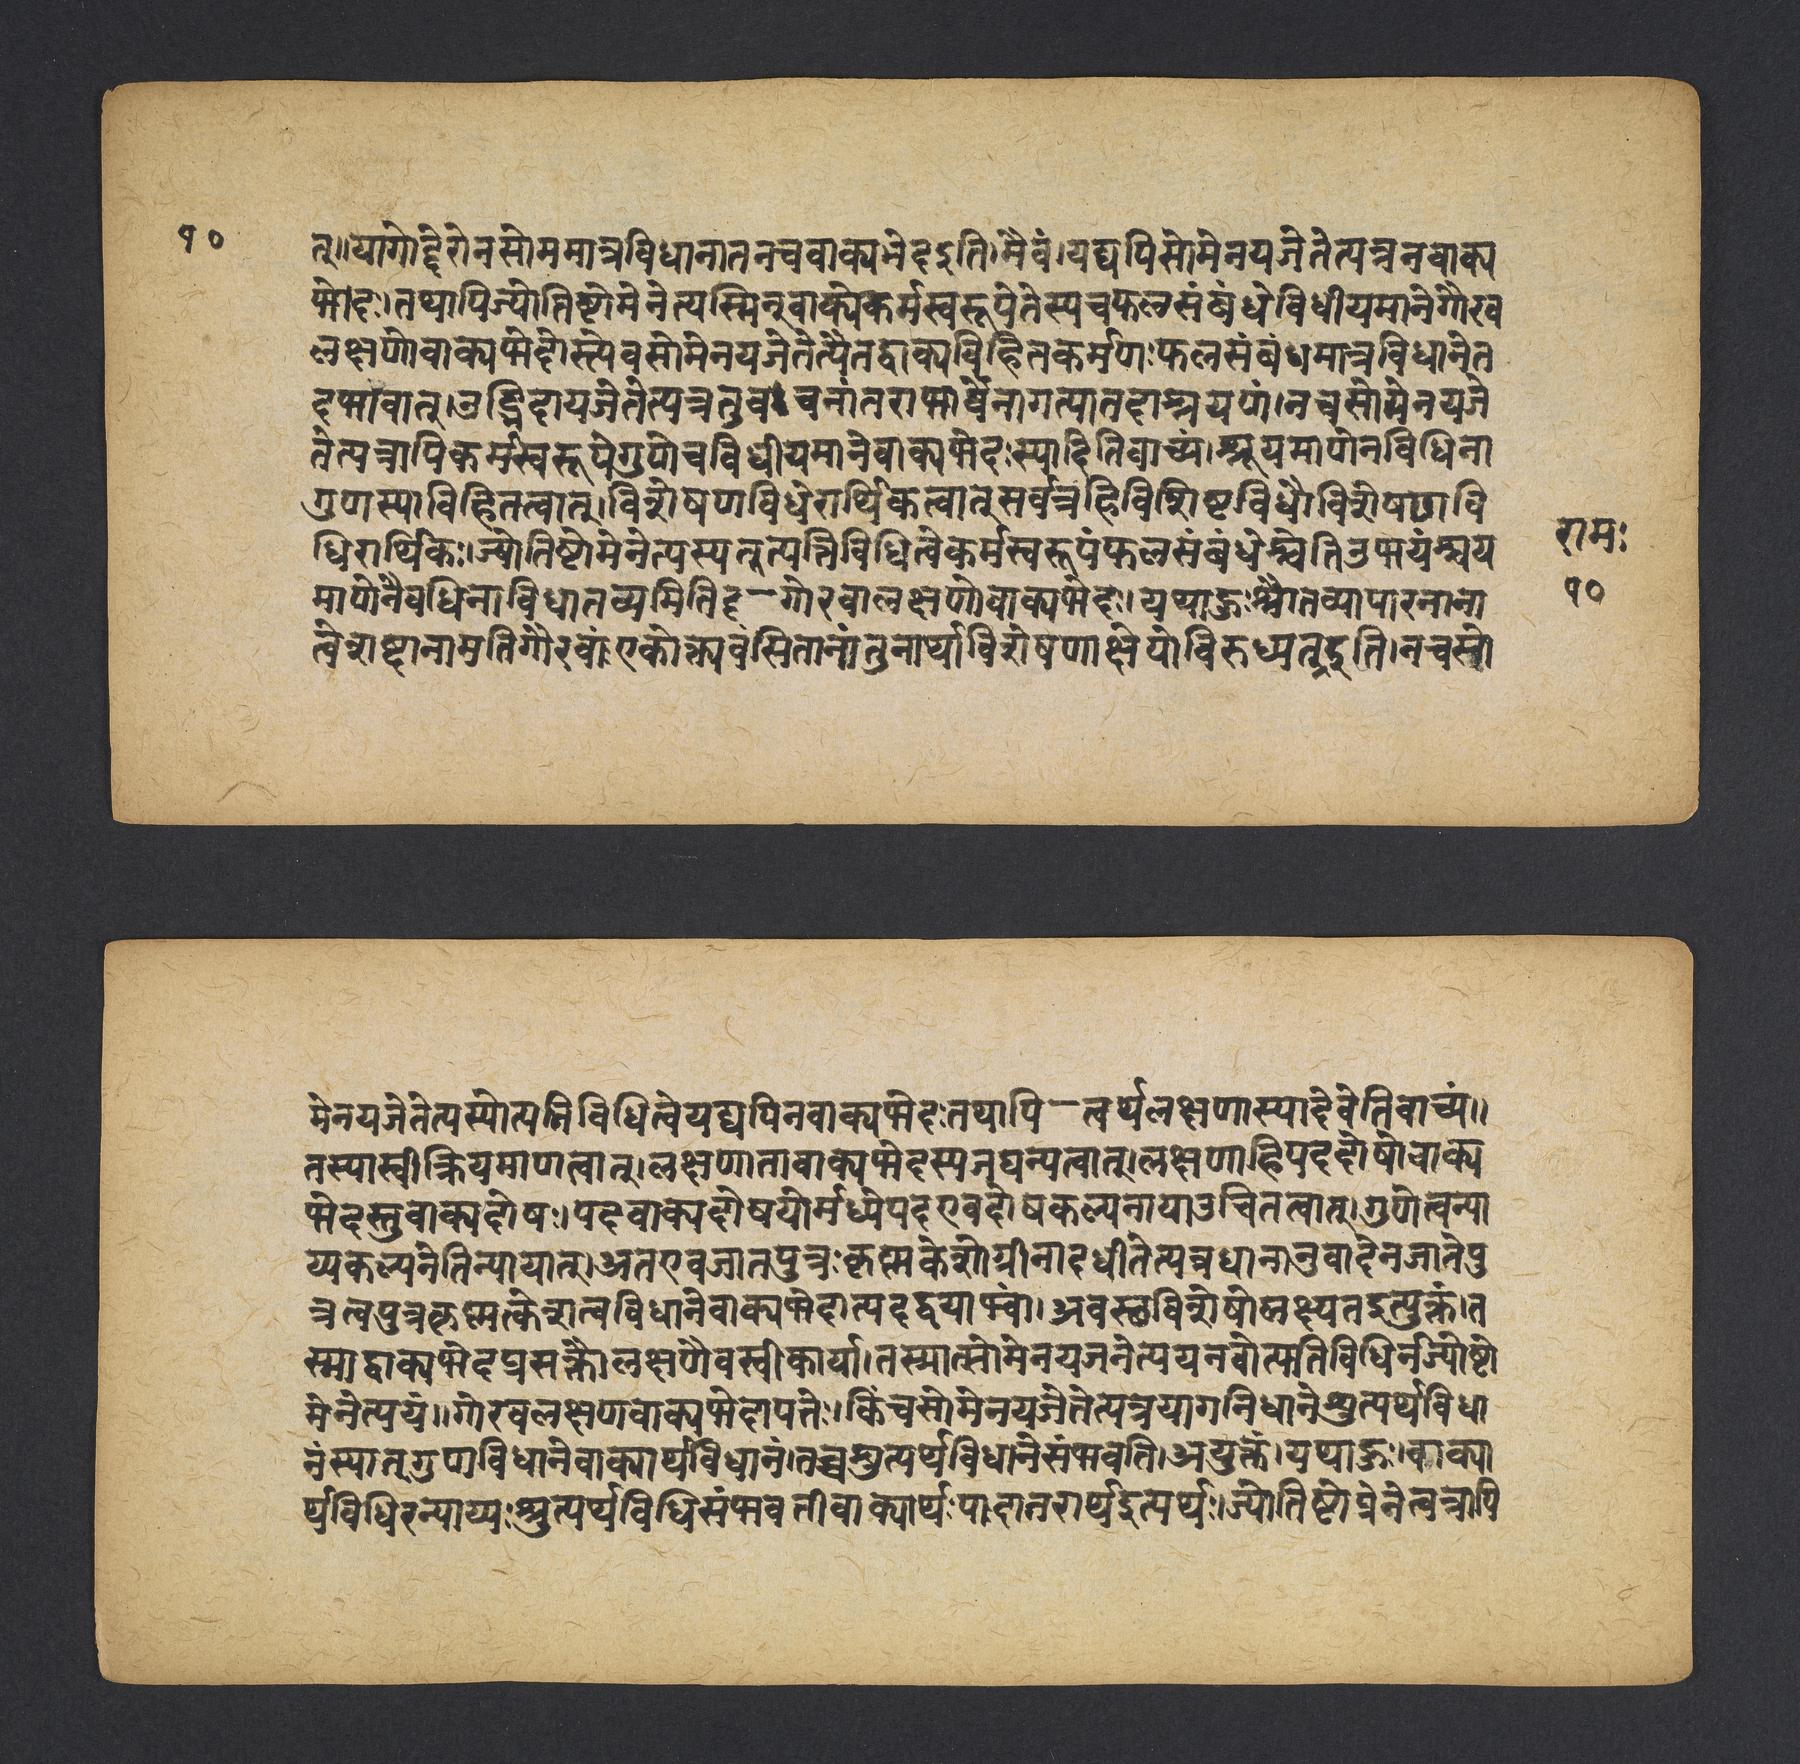 १०
त्॥यागोद्देशेनसोममात्रविधानातनचवाक्यभेदइति।मैवं।यद्यपिसोमेनयजेतेत्यत्रनवाक्य
भेदः।तथापिज्योतिष्टोमेनेत्यस्मिन्वाक्येकर्मस्वरूपेतेस्यचफलसंबंधेविधीयमानेगौरव
लक्षणोवाक्यभेदोस्त्येवसोमेनयजेतेत्यैतद्वाक्यविहितकर्मणःफलसंबंधमात्रविधानेत
दभावात्।उद्भिदायजेतेत्यत्रतुवचनांतराभावेनागत्यातदाश्रयणं।नचसोमेनयजे
तेत्यत्रापिकर्मस्वरूपेगुणेचविधीयमानेवाक्यभेदःस्यादितिवाच्यं।श्रूयमाणेनविधिना
गुणस्याविहितत्वात्।विशेषणविधेरार्थिकत्वात्सर्वत्रहिविशिष्टविधौविशेषणवि
धिरार्थिकः।ज्योतिष्टोमेनेत्यस्यतूत्पत्तिविधित्वेकर्मस्वरूपंफलसंबंधेश्चेतिउभयंश्रूय
राम:
माणेनैवधिनाविधातव्यमितिदृ—गोरवालक्षणोवाक्यभेदः।यथाहुःश्रौतव्यापारनाना
१०
त्वेशष्टानामतिगौरवां।एकोक्त्यवंसितानांतुनार्थाविशेषणाक्षेपोविरुध्यतइति।नचसो
मेनयजेतेत्यस्योत्पत्तिविधित्वेयद्यपिनवाक्यभेदःतथापि—त्वर्थलक्षणास्यादेवेतिवाच्यं॥
तस्यास्वीक्रियमाणत्वात्।लक्षणातावाक्यभेदस्यजघन्यत्वात्।लक्षणाहिपददोषोवाक्य
भेदस्तुवाक्यदोषः।पदवाक्यदोषयोर्मध्येपदएवदोषकल्पनायाउचितत्वात्।गुणेत्वन्या
य्यकल्पनेतिन्यायात्।अतएवजातपुत्रःकृष्णकेशोग्नीनादधीतेत्यत्रधानानुवादेनजातेपु
त्रत्वपुत्रकृष्णत्केशत्वविधानेवाक्यभेदात्पदद्वयाभ्वां।अवस्छाविशेषोलक्ष्यतइत्युक्तं।त
स्माद्वाक्यभेदप्रसक्तौलक्षणैवस्वीकार्या।तस्मात्सोमेनयजनेत्ययनवोत्पतिविधिर्नज्योष्टो
मेनेत्ययं॥गोरवलक्षणवाक्यभेदापत्तेः।किंचसोमेनयजेतेत्यत्रयागनिधानेश्रुत्यर्थविधा
नंस्यात्गुणविधानेवाक्यार्थविधानं।तच्चश्रुत्यर्थविधानेसंभवति।अयुक्तं।यथाहुः।वाक्या
र्थविधिरन्याय्यःश्रुत्यर्थविधिसंभवतीवाक्यार्थःपादातरार्थइत्यर्थः।ज्योतिष्टोमेनेत्वत्रापि